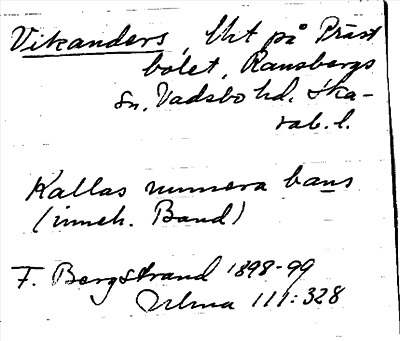 Vikanders, lht på Präst
bolet, Ransbergs
sn, Vadsbo hd, Ska-
rab. l.
Kallas numera bans
(inneh. Band)
F. Bergstrand 1898-99
111:328